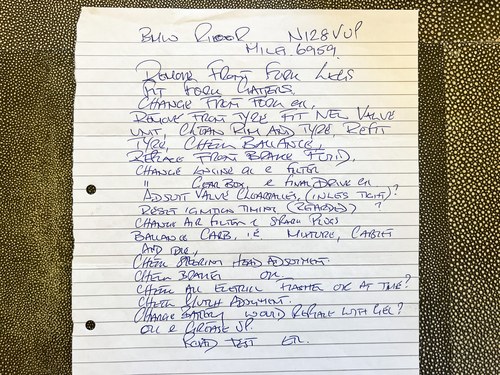 BMW N128VUP
MILE. 6959
REMOVE FRONT FORK LEGS
FIT FORK GAITERS.
CHANGE FRONT FORK OIL,
REMOVE FRONT TYRE FIT NEW VALVE
UNIT, CLEAN RIM AND TYRE, REFIT
TYRE, CHECK BALLANCE,
REPLACE FRONT BRAKE FLUID,
CHANGE ENGINE OIL & FILTER
" GEAR BOX & FINAL DRIVE OIL
ADJUST VALVE CLEARANCES, (INLETS TIGHT)?
RESET IGNITION TIMING (RETARDED) ?
CHANGE AIR FILTER & SPARK PLUGS
BALLANCE CARB, I.E MIXTURE, CABLES
AND IDLE,
CHECK STEERING HEAD ADJUSTMENT.
CHECK BRAKES OK
CHECK ALL ELECTRICS FLASHER OK AT TIME?
CHECK CLUTCH ADJUSTMENT.
CHANGE BATTERY WOULD REPLACE WITH GEL?
OIL & GREASE UP.
ROAD TEST ETC.